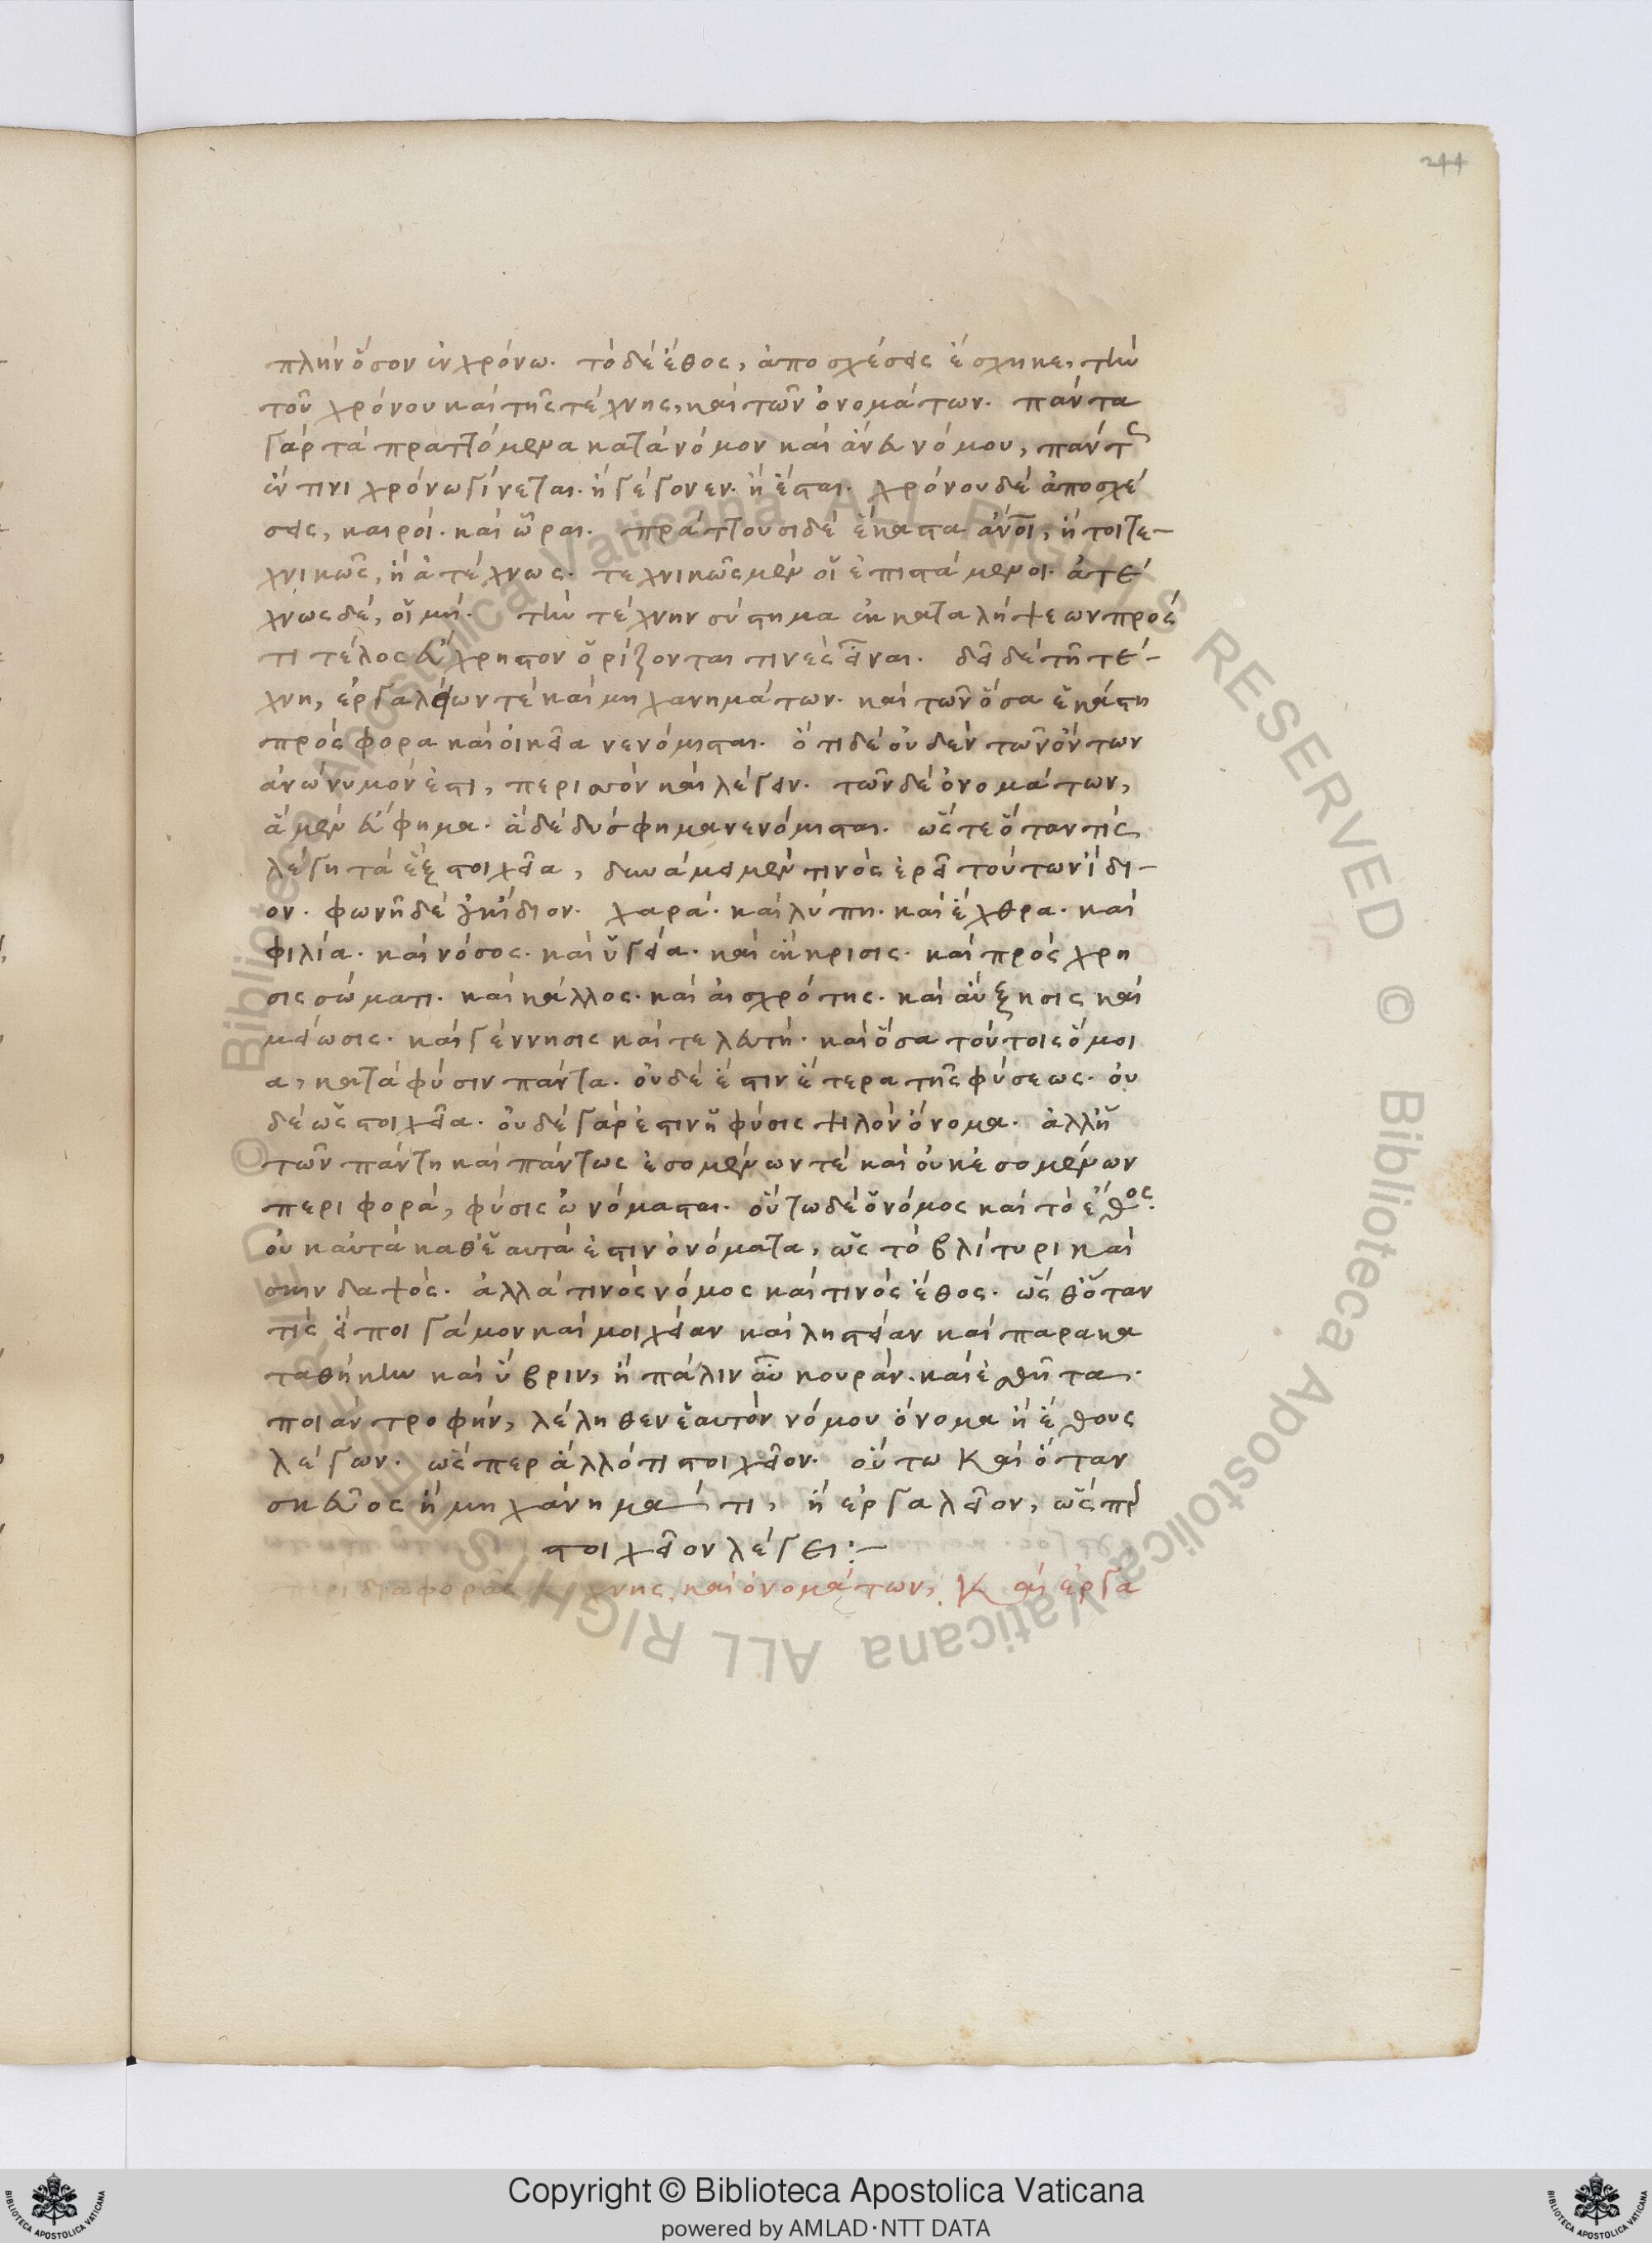 244
πλὴν ὅσον ἐν χρόνω. τὸ δὲ ἔθος, ἀποσχέσεις ἔσχηκε, τὴν
τοῦ χρόνου καὶ τῆς τέχνης, καὶ τῶν ὀνομάτων. πάντα
γὰρ τὰ πραττόμενα κατὰ νόμον καὶ ἄνευ νόμου, πάντ
ἔν τινι χρόνω γίνεται. ἢ γέγονεν. ἢ ἔσται. χρόνου δὲ ἀποσχέ
σεις, καιροί. καὶ ὧραι. πράττουσι δὲ ἕκαστα ἄνοι, ἤτοι τε-
χνικῶς, ἢ ἀτέχνως. τεχνικῶς μὲν οἱ ἐπιστάμενοι. ἀτέ
χνως δὲ, οἱ μή. τὴν τέχνην σύστημα ἐκ καταλήψεων πρὸς
τι τέλος εὔχρηστον ὁρίζονται τινὲς εἶναι. δεῖ δὲ τῆ τέ-
χνη, ἐργαλείων τὲ καὶ μηχανημάτων. καὶ τῶν ὅσα ἑκάστη
πρόσφορα καὶ οἰκεῖα νενόμισται. ὅτι δὲ οὐδὲν τῶν ὄντων
ἀνώνυμόν ἐστι, περισσὸν καὶ λέγειν. τῶν δὲ ὀνομάτων,
ἃ μὲν εὔφημα. ἃ δὲ δύσφημα νενόμισται. ὥστε ὅταν τίς
λέγη τὰ ἓξ στοιχεῖα, δυνάμει μὲν τινὸς ἐρεῖ τούτων ἴδι-
ον. φωνῆ δὲ ἴδιον. χαρά. καὶ λύπη. καὶ ἔχθρα. καὶ
φιλία. καὶ νόσος. καὶ ὑγεία. καὶ ἔκκρισις. καὶ πρὸς χρη
σις σώματι. καὶ κάλλος. καὶ αἰσχρότης. καὶ αὔξησις καὶ
μείωσις. καὶ γέννησις καὶ τελευτή. καὶ ὅσα τούτοις ὅμοι
α, κατὰ φύσιν πάντα. οὐδέ ἐστιν ἕτερα τῆς φύσεως. οὐ
δὲ ὡς στοιχεῖα. οὐδὲ γάρ ἐστιν ἡ φύσις ψιλὸν ὄνομα. ἀλλ' ἡ
τῶν πάντη καὶ πάντως ἐσομένων τὲ καὶ οὐκ ἐσομένων
περιφορά, φύσις ὠνόμασται. οὕτω δὲ ὁ νόμος καὶ τὸ ἔθος.
οὐκ αὐτὰ καθ' ἑαυτά ἐστιν ὀνόματα, ὡς τὸ βλίτυρι καὶ
σκινδαψός. ἀλλὰ τινὸς νόμος καὶ τινὸς ἔθος. ὥσθ' ὅταν
τίς εἴποι γάμον καὶ μοιχείαν καὶ ληστείαν καὶ παρακα
ταθήκην καὶ ὕβριν, ἢ πάλιν αὖ κουράν. καὶ ἐσθῆτα.
ποιὰν τροφήν, λέληθεν ἑαυτὸν νόμου ὄνομα ἢ ἔθους
λέγων. ὥσπερ ἄλλό τι στοιχεῖον. οὕτω καὶ ὅταν
σκεῦος ἢ μηχάνημά τι, ἢ ἐργαλεῖον, ὥσπερ
στοιχεῖον λέγει:-
περὶ διαφορᾶς τέχνης, καὶ ὀνομάτων, καὶ ἐργα
Copyright © Biblioteca Apostolica Vaticana
powered by AMLAD·NTT DATA